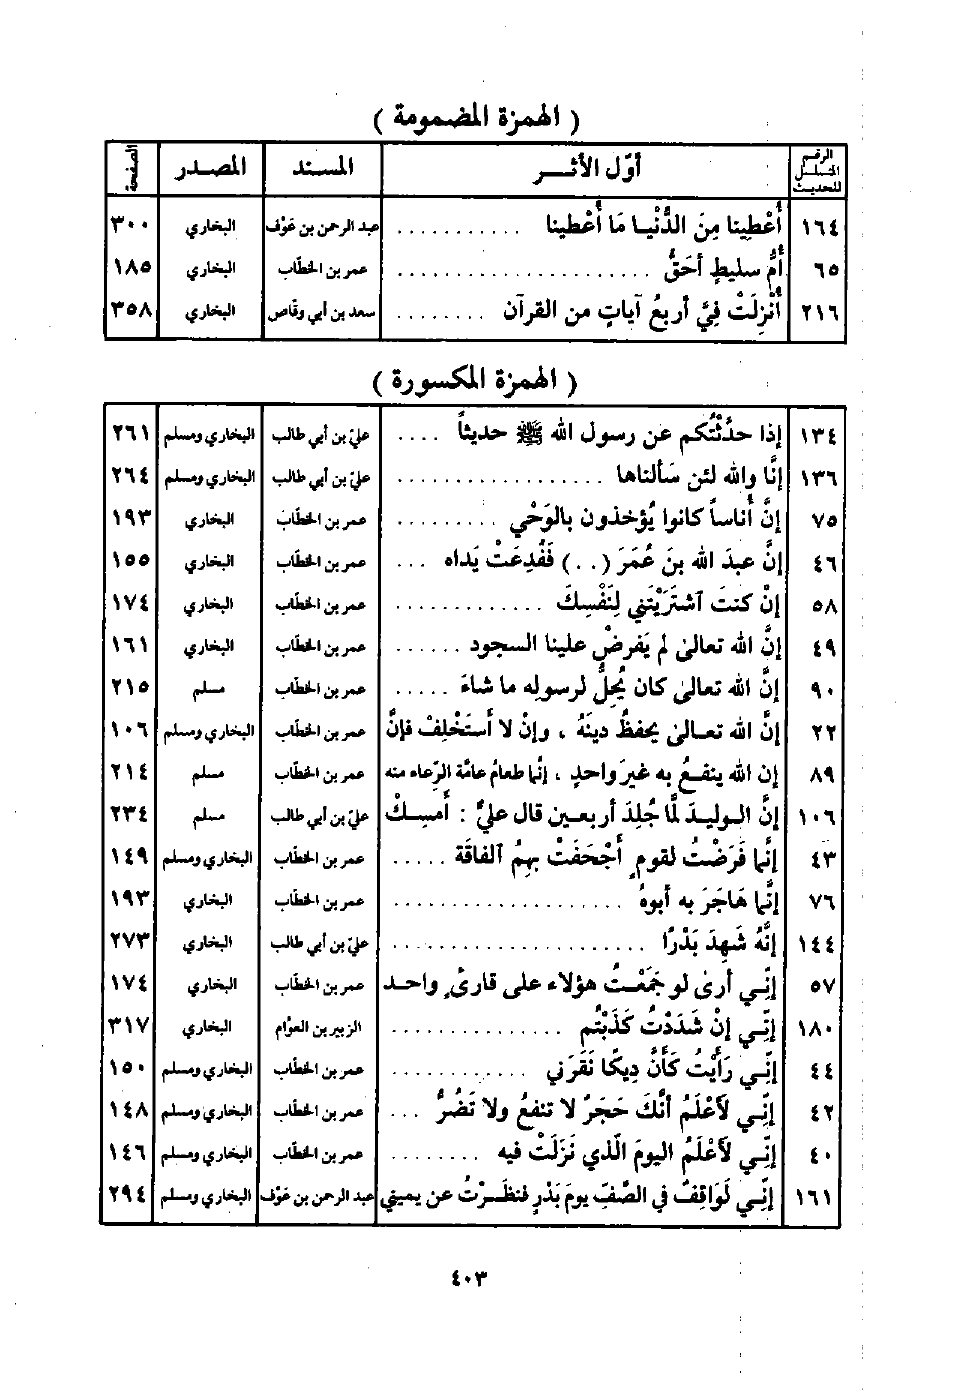 ( الهمزة المضمومة )
الرقم المسلسل للحديث أوّل الأثـــر المسنـد المصـدر الصفحة
١٦٤ أُعْطِينا مِنَ الدُّنْيـا مَا أُعْطينا . . . . . . . . . . . عبد الرحمن بن عَوْف البخاري ٣٠٠
٦٥ أُمُّ سليطٍ أحَقُّ . . . . . . . . . . . . . . . . . . . . . . عمر بن الخطّاب البخاري ١٨٥
٢١٦ أُنْزِلَتْ فِيَّ أربعُ آياتٍ من القرآن . . . . . . . . سعد بن أبي وقّاص البخاري ٣٥٨
( الهمزة المكسورة )
١٣٤ إذا حدَّثْتُكم عن رسول الله ﷺ حديثاً . . . . عليّ بن أبي طالب البخاري ومسلم ٢٦١
١٣٦ إنَّا والله لئن سَألناها . . . . . . . . . . . . . . . . . . عليّ بن أبي طالب البخاري ومسلم ٢٦٤
٧٥ إنَّ أُناساً كانوا يُؤخذون بالوَحْي . . . . . . . . . عمر بن الخطّاب البخاري ١٩٣
٤٦ إنَّ عبدَ الله بنَ عُمَرَ ( . . ) فَفُدِعَتْ يَداه . . . عمر بن الخطّاب البخاري ١٥٥
٥٨ إنْ كنتَ آشترَيْتَني لِنَفْسِكَ . . . . . . . . . . . . . عمر بن الخطّاب البخاري ١٧٤
٤٩ إنَّ الله تعالىٰ لم يَفرضْ علينا السجود . . . . . . عمر بن الخطّاب البخاري ١٦١
٩٠ إنَّ الله تعالىٰ كان يُحِلُّ لرسولِه ما شاءَ . . . . . عمر بن الخطّاب مسلم ٢١٥
٢٢ إنَّ الله تعـالىٰ يحفظُ دينَهُ ، وإنْ لا أستَخْلِفْ فإنَّ عمر بن الخطّاب البخاري ومسلم ١٠٦
٨٩ إن الله ينفـعُ به غيرَ واحدٍ ، إنَّما طعامُ عامَّة الرِّعاء منه عمر بن الخطّاب مسلم ٢١٤
١٠٦ إنَّ الـوليـدَ لمَّا جُلِدَ أربعـين قال عليٌّ : أمسِـكْ عليّ بن أبي طالب مسلم ٢٣٤
٤٣ إنَّما فَرَضْتُ لقومٍ أجْحَفَتْ بهِمُ الفاقَة . . . . . عمر بن الخطّاب البخاري ومسلم ١٤٩
٧٦ إنَّما هَاجَرَ به أبوهُ . . . . . . . . . . . . . . . . . . . . عمر بن الخطّاب البخاري ١٩٣
١٤٤ إنَّهُ شَهِدَ بَدْرًا . . . . . . . . . . . . . . . . . . . . . . عليّ بن أبي طالب البخاري ٢٧٣
٥٧ إنّـي أرىٰ لو جَمَعْـتُ هؤلاء على قارئٍ واحـد عمر بن الخطّاب البخاري ١٧٤
١٨٠ إنّـي إنْ شَدَدْتُ كَذَبْتُم . . . . . . . . . . . . . . . الزبير بن العوّام البخاري ٣١٧
٤٤ إنّـي رَأيْتُ كَأنَّ دِيكًا نَقَرَني . . . . . . . . . . . . عمر بن الخطّاب البخاري ومسلم ١٥٠
٤٢ إنّـي لَأعْلَمُ أنَّكَ حَجَرٌ لا تنفعُ ولا تَضُرُّ . . . عمر بن الخطّاب البخاري ومسلم ١٤٨
٤٠ إنّـي لَأعْلَمُ اليومَ الّذي نَزَلَتْ فيه . . . . . . . . عمر بن الخطّاب البخاري ومسلم ١٤٦
١٦١ إنّـي لَوَاقِفٌ في الصَّفِّ يومَ بَدْرٍ فنظَـرْتُ عن يميني عبد الرحمن بن عَوْف البخاري ومسلم ٢٩٤
٤٠٣